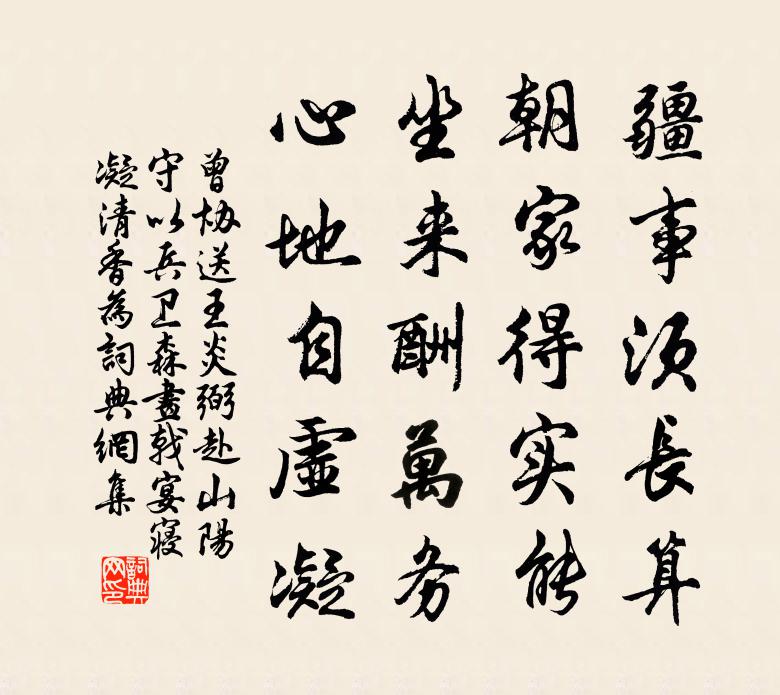 疆事须長算
朝家得实能
坐来酬萬务
心地自虛凝
曾协送王炎弼赴山陽
守以兵卫森畫戟宴寝
凝清香為詞典網集
詞典
网印